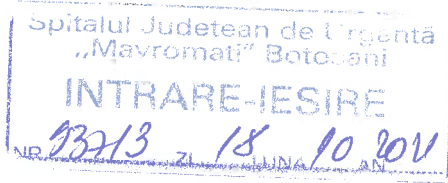 Spitalul Județean de Urgență
„Mavromati” Botoșani
INTRARE-IESIRE
NR. 53713 ZI 18 LUNA 10 AN 2021